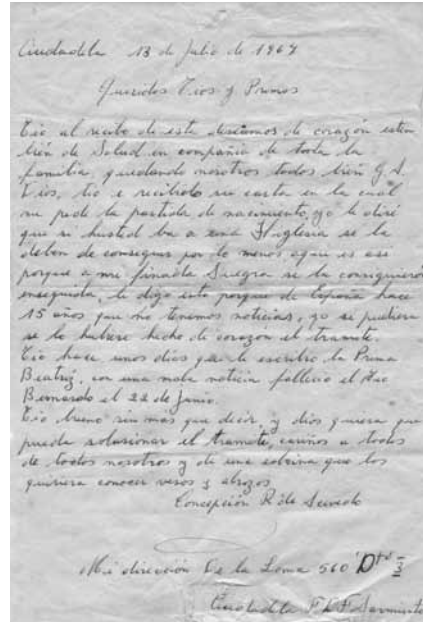 Ciudadela 13 de Julio de 1967
Queridos Tios y Primos
Tio al recibo de esta deseamos de corazón esten
bién de Salud en compañia de toda la
familia, quedando nosotros todos bién G. A.
Dios, tio e recibido su carta en la cuál
me pide la partida de nacimiento, yo le diré
que si husted ba a una Iglesia se la
deben de conseguir por lo menos aqui es asi
porque a mi finada Suegra se la consiguierón
enseguida, le digo esto porque de España hace
15 años que no tenemos noticias, yo si pudiera
se lo hubiera hecho de corazon el tramite.
Tio hace unos dias que le escribio la Prima
Beatriz, con una mala noticia fallecio el tio
Bernardo el 22 de Junio.
Tio bueno sin más que decir, y dios quiera que
pueda solusionar el tramite, cariños a todos
de todos nosotros y de una sobrina que los
quisiera conocer vesos y abrazos
Concepción R. de
Mi dirección De la Loma 560 Dto 3
Ciudadela F. C. F. Sarmiento